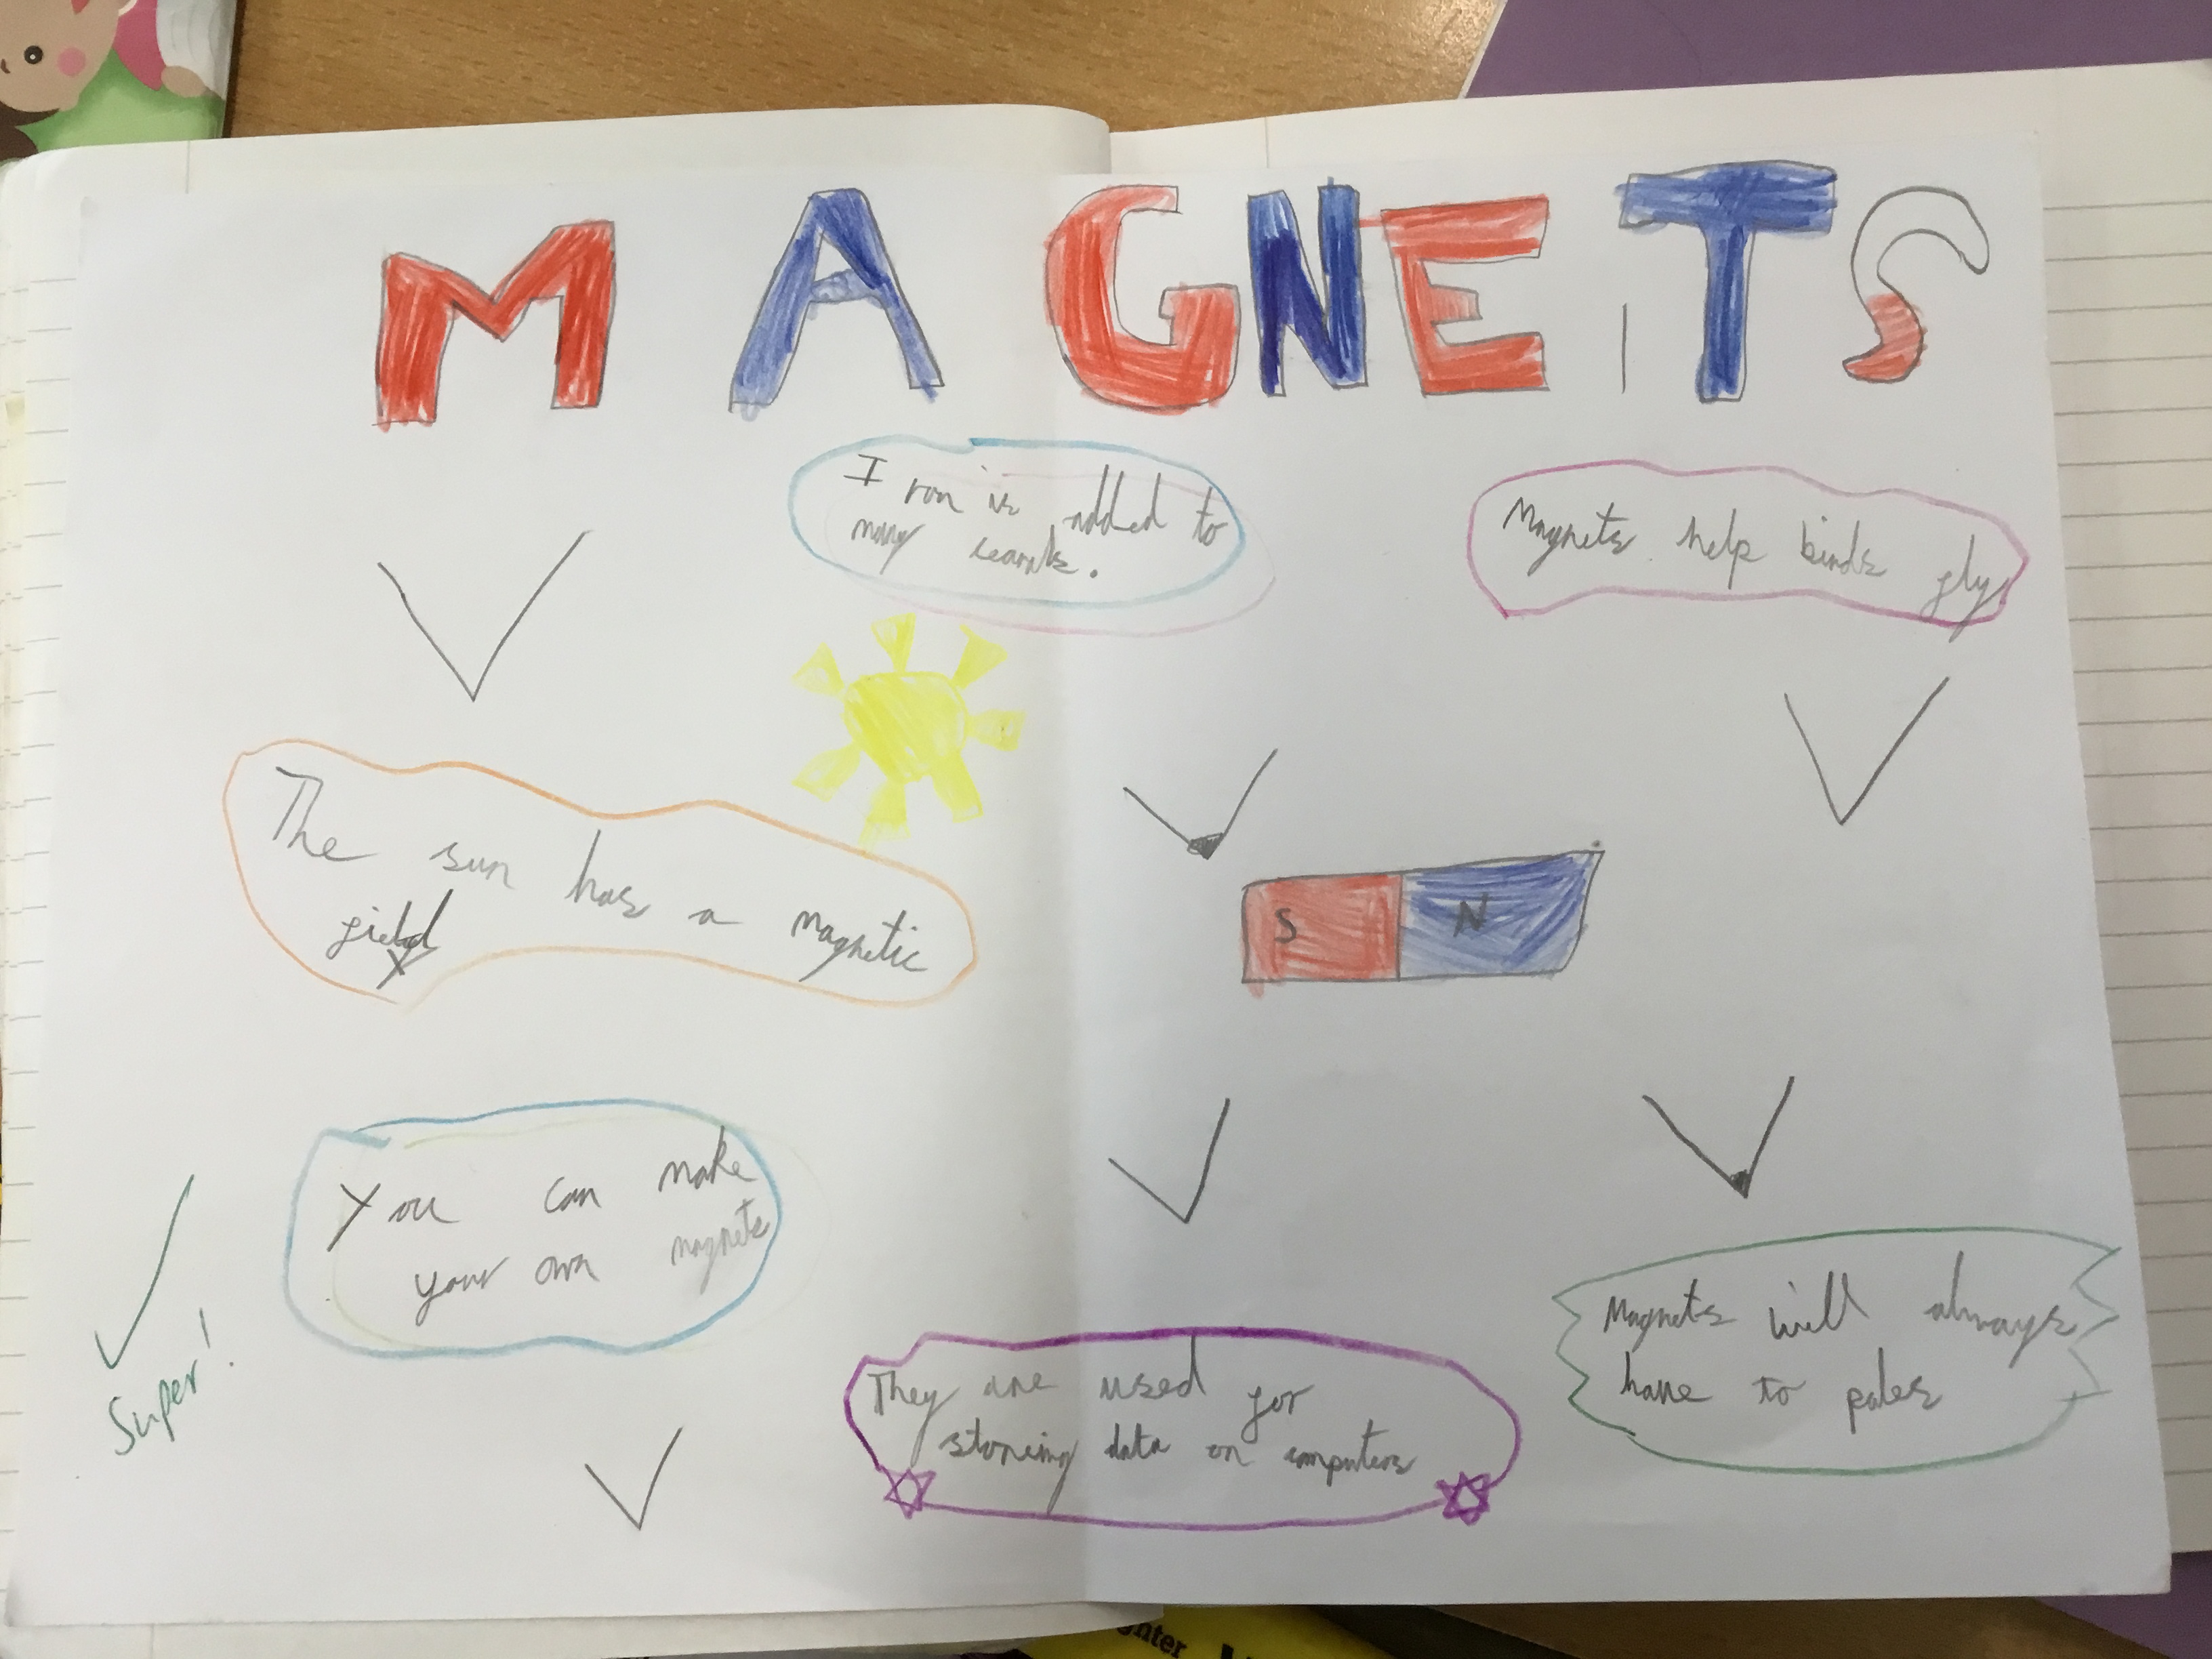 MAGNETS
I ron is added to
many
Magnets help birds fly
The sun has a magnetic
field
S N
You can make
your own magnets
Super!
They are used for
storing data on computers
Magnets will always
have to poles
ghter